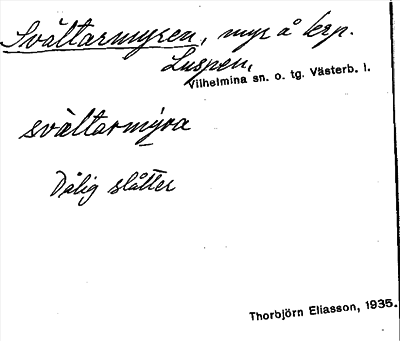 Svältarmyren, myr å krp.
Luspen,
Vilhelmina sn. o. tg. Västerb. l.
svältarmýra
Dålig slåtter
Thorbjörn Eliasson, 1935.